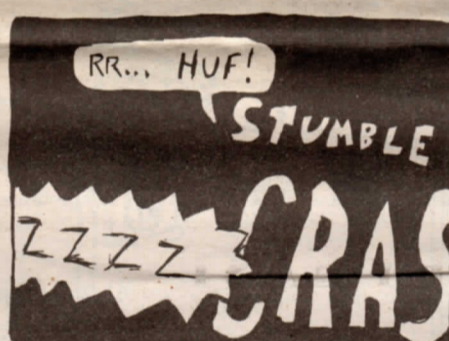 RR... HUF!
STUMBLE
ZZZZZ
CRAS